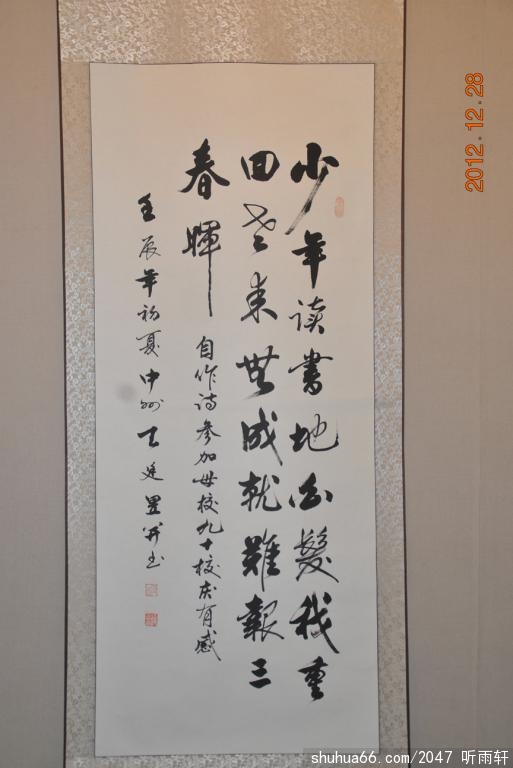 少年读书地白髮我重
回老来無成就難報三
春暉
自作诗参加母校九十校庆有感
壬辰年初夏中州王廷墨并书
2012.12.28
shuhua66.com/2047 听雨轩